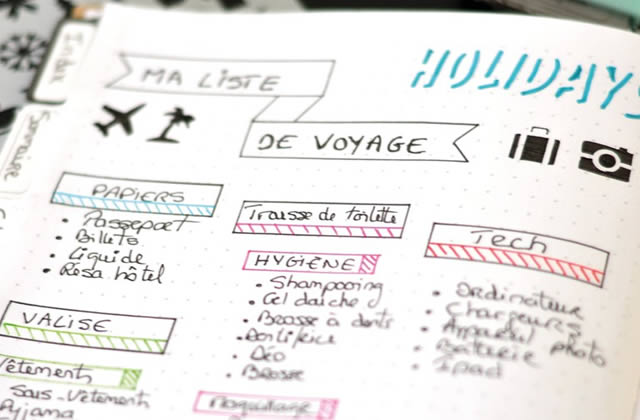 Index
Sommaire
HOLIDAYS
MA LISTE
DE VOYAGE
PAPIERS
• Passeport
• Billets
• Liquide
• Résa hôtel
VALISE
Vêtement
Sous-vêtements
Pyjama
Trousse de toilette
HYGIÈNE
• Shampooing
• Gel douche
• Brosse à dents
• Dentifrice
• Déo
• Brosse
Maquillage
Tech
• Ordinateur
• Chargeurs
• Appareil photo
• Batterie
• Ipad